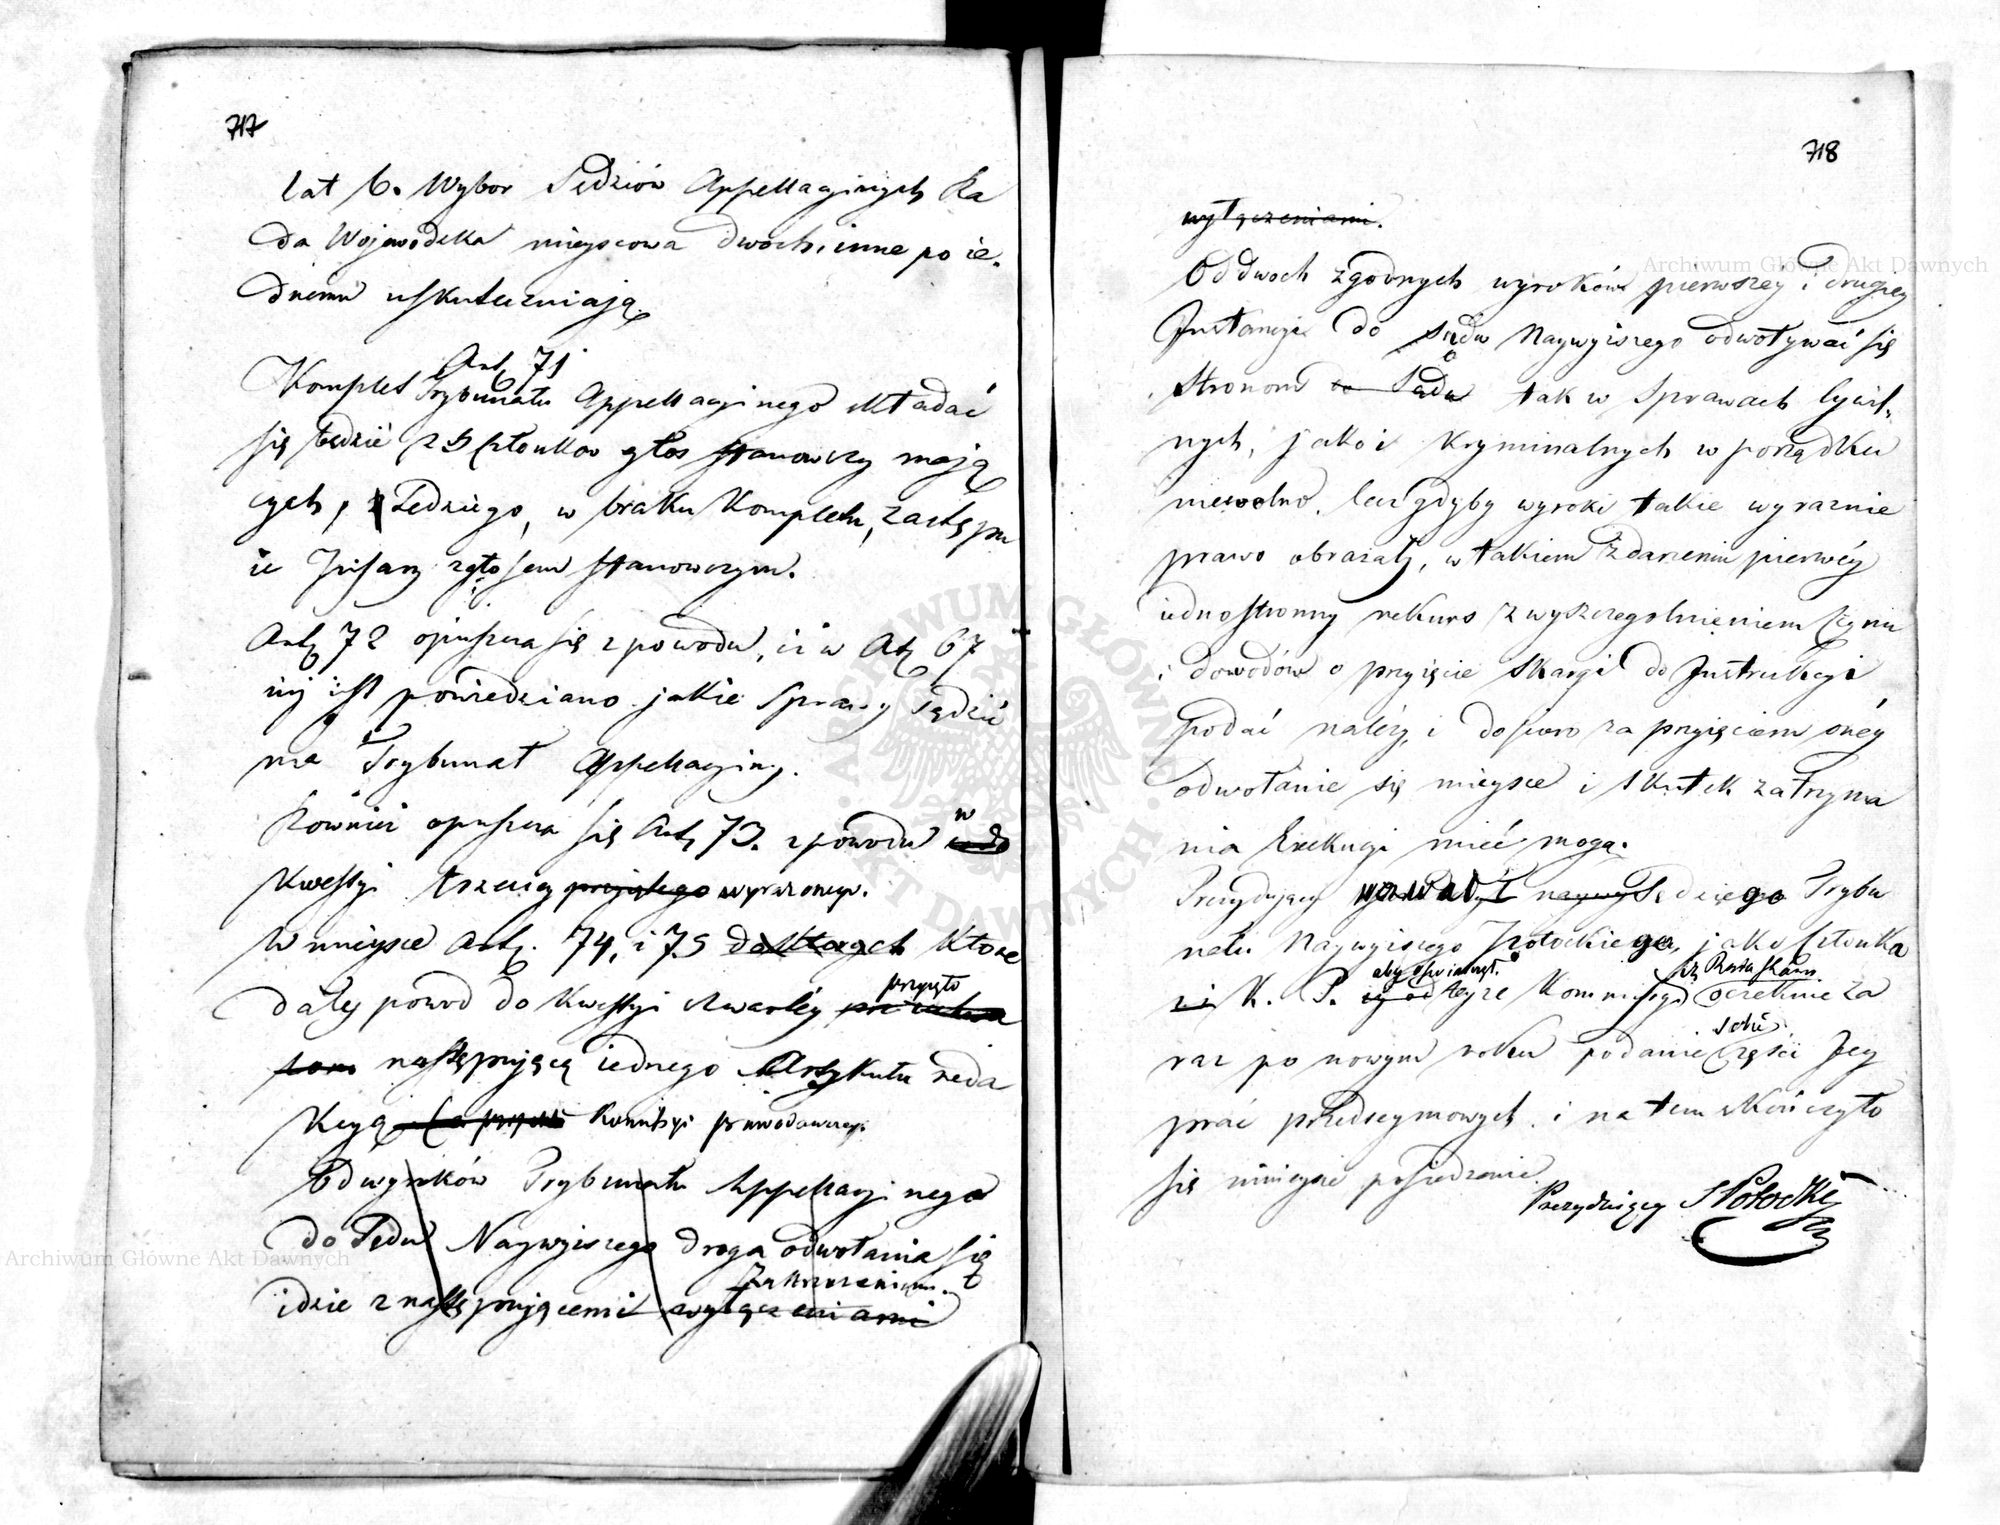 717
lat 6. Wybor Sędziów Appellacyinych Ra
da Wojewodzka mieyscowa dwóch, inne po ie-
dnemu uskuteczniają.
Art. 71
Komplet Trybunału Appellacyinego składać
się będzie z 5 Członków głos stanowczy mają
cych, Sędziego, w braku Kompletu, zastępu
ie Pisarz z głosem stanowczym.
Art. 72 opuszcza się z powodu, iż w Art. 67
iuż iest powiedziano jakie Sprawy sądzić
ma Trybunał Appellacyiny.
Również opuszcza się Art. 73. z powodu w
Kwestyi trzeciey przyiętego wyrażonego.
W mieysce Art. 74, i 75 do których które
dały powod do Kwestyi czwartéy przyięto
następującą iednego Artykułu reda
kcyą Kommissyi prawodawczey.
Od wyroków Trybunału Appellacyinego
do Sądu Naywyższego droga odwołania się
idzie z następującemi wyłączeniami
Zastrzeżeniami.
718
wyłączeniami.
Od dwoch zgodnych wyroków pierwszey i drugiey
Instancyi do Sądu Naywyższego odwoływać się
stronom do Sądu tak w Sprawach Cywil-
nych, jako i Kryminalnych w porządku
niewolno. lecz gdyby wyroki takie wyraznie
prawo obrażały, w takiem zdarzeniu pierwéy
iednostronny rekurs z wyszczegolnieniem Czynu
i dowodów o przyięcie Skargi do Instrukcyi
podać należy, i dopiero za przyięciem onéy
odwołanie się mieysce i skutek zatrzyma
nia Exekucyi mieć mogą.
Prezyduiący wezwał Sędziego Trybu
nału Naywyższego Potockiego, jako Członka
K. P. aby oświadczył. teyże Kommissyi iż Rada Stanu oczekuie za
raz po nowym roku podanie sobie części Jey
prac przedseymowych. i na tem skończyło
się ninieysze posiedzenie.
Prezyduiący S Potocki
Archiwum Główne Akt Dawnych
Archiwum Główne Akt Dawnych
ARCHIWUM GŁÓWNE AKT DAWNYCH